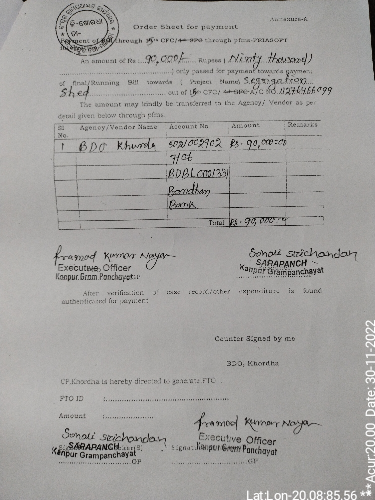 Annexure-A
Order Sheet for payment
Payment of Bill through 15th CFC/ through pfms-PRIASOFT
An amount of Rs 90,000/- Rupees (Ninty thousand
) only passed for payment towards payment
of final/Running Bill towards ( Project Name) Segrigation
Shed out of 15th CFC/
The amount may kindly be transferred to the Agency/ Vendor as per
detail given below through pfms.
Sl No. Agency/Vendor Name Account No Amount Remarks
1 BDO Khurda Rs- 90,000=00
Bandhan
Bank
Total Rs- 90,000=
Pramod Kumar Nayak Sonali Srichandan
Executive Officer SARAPANCH
Kanpur Gram Panchayat Kanpur Grampanchayat
After verification of case record/other expenditure is found
authenticated for payment
Counter Signed by me
BDO, Khordha
CP,Khordha is hereby directed to generate FTO
FTO ID :
Amount :
Sonali Srichandan Pramod Kumar Nayak
SARAPANCH Executive Officer
Kanpur Grampanchayat Kanpur Gram Panchayat
GP GP
Lat:Lon-20.08:85.56 **Acur:20.00 Date: 30-11-2022